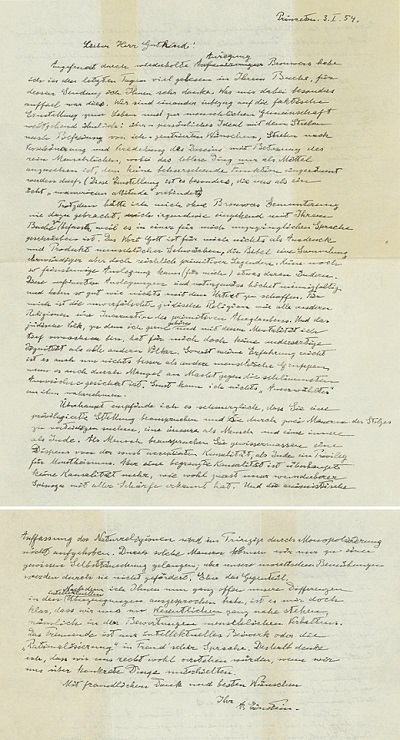 Princeton. 3. I. 54.
Lieber Herr Gutkind!
Anregung
Angefeuert durch wiederholte Brouwers habe
ich in den letzten Tagen viel gelesen in Ihrem Buche, für
dessen Sendung ich Ihnen sehr danke. Was mir dabei besonders
auffiel war dies. Wir sind einander inbezug auf die faktische
Einstellung zum Leben und zur menschlichen Gemeinschaft
weitgehend ähnlich: Ideal mit dem Streben
nach Befreiung von ich-zentrierten Wünschen, Streben nach
Verschönerung und Veredelung des Daseins mit Betonung des
rein Menschlichen, wobei das leblose Ding nur als Mittel
anzusehen ist, dem keine beherrschende Funktion eingeräumt
werden darf. (Diese Einstellung ist es besonders, die uns als ein
echt „unamerican attitude" verbindet)
Trotzdem hätte ich mich ohne Brouwers Ermunterung
nie dazu gebracht, mich irgendwie eingehend mit Ihrem
Buche zu befassen, weil es in einer für mich unzugänglichen Sprache
geschrieben ist. Das Wort Gott ist für mich nichts als Ausdruck
und Produkt menschlicher Schwächen, die Bibel eine Sammlung
ehrwürdiger aber doch reichlich primitiver Legenden. Keine noch
so feinsinnige Auslegung kann (für mich) etwas daran ändern.
Diese verfeinerten Auslegungen sind naturgemäss höchst mannigfaltig
und haben so gut wie nichts mit dem Urtext zu schaffen. Für
mich ist die unverfälschte jüdische Religion wie alle anderen
Religionen eine Incarnation des primitiven Aberglaubens. Und das
jüdische Volk, zu dem ich gerne gehöre und mit dessen Mentalität ich
tief verwachsen bin, hat für mich doch keine andersartige
Dignität als alle anderen Völker. Soweit meine Erfahrung reicht
ist es auch um nichts besser als andere menschliche Gruppen,
wenn es auch durch Mangel an Macht gegen die schlimmsten
Auswüchse gesichert ist. Sonst kann ich nichts „Auserwähltes"
an ihm wahrnehmen.
Überhaupt empfinde ich es schmerzlich, dass Sie eine
privilegierte Stellung beanspruchen und sie durch zwei Mauern des Stolzes
zu verteidigen suchen, eine äussere als Mensch und eine innere
als Jude. Als Mensch beanspruchen Sie gewissermassen einen
Dispens von der sonst acceptierten Kausalität, als Jude ein Privileg
für Monotheismus. Aber eine begrenzte Kausalität ist überhaupt
keine Kausalität mehr, wie wohl zuerst unser wunderbarer
Spinoza mit aller Schärfe erkannt hat. Und die animistische
Auffassung der Naturreligionen wird im Prinzip durch Monopolisierung
nicht aufgehoben. Durch solche Mauern können wir nur zu einer
gewissen Selbsttäuschung gelangen, aber unsere moralischen Bemühungen
werden durch sie nicht gefördert. Eher das Gegenteil.
Nachdem ich Ihnen nun ganz offen unsere Differenzen
in den intellektuellen Überzeugungen ausgesprochen habe, ist es mir doch
klar, dass wir uns im Wesentlichen ganz nahe stehen,
nämlich in den Bewertungen menschlichen Verhaltens.
Das Trennende ist nur intellektuelles Beiwerk oder die
„Rationalisierung" in Freud'scher Sprache. Deshalb denke
ich, dass wir uns recht wohl verstehen würden, wenn wir
uns über konkrete Dinge unterhielten.
Mit freundlichem Dank und besten Wünschen
Ihr
A. Einstein.